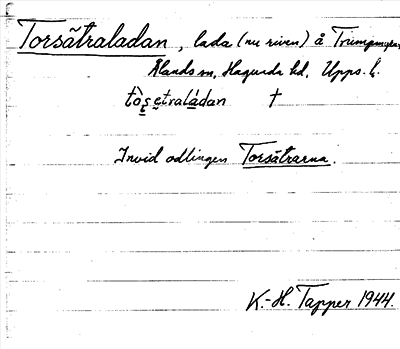 Torsätraladan, lada (nu riven) å
Ålands sn, Hagunda hd, Upps. l.
tò̱s̨e̱traládan †
Invid odlingen Torsätrarna.
K.-H. Tapper 1944.